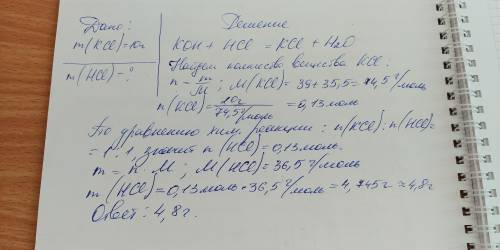 Дано:
Решение
m(KCl)=10г
m(HCl)-?
KOH + HCl = KCl + H₂O
Найдем количество вещества KCl:
n = m/M; M(KCl) = 39+35,5=74,5 г/моль
n(KCl) = 10г/74,5 г/моль = 0,13 моль
По уравнению хим. реакции: n(KCl):n(HCl)=
= 1:1, значит n(HCl)=0,13 моль.
m = n·M; M(HCl)=36,5 г/моль
m(HCl)=0,13 моль·36,5 г/моль = 4,745г ≈ 4,8г
Ответ: 4,8г.